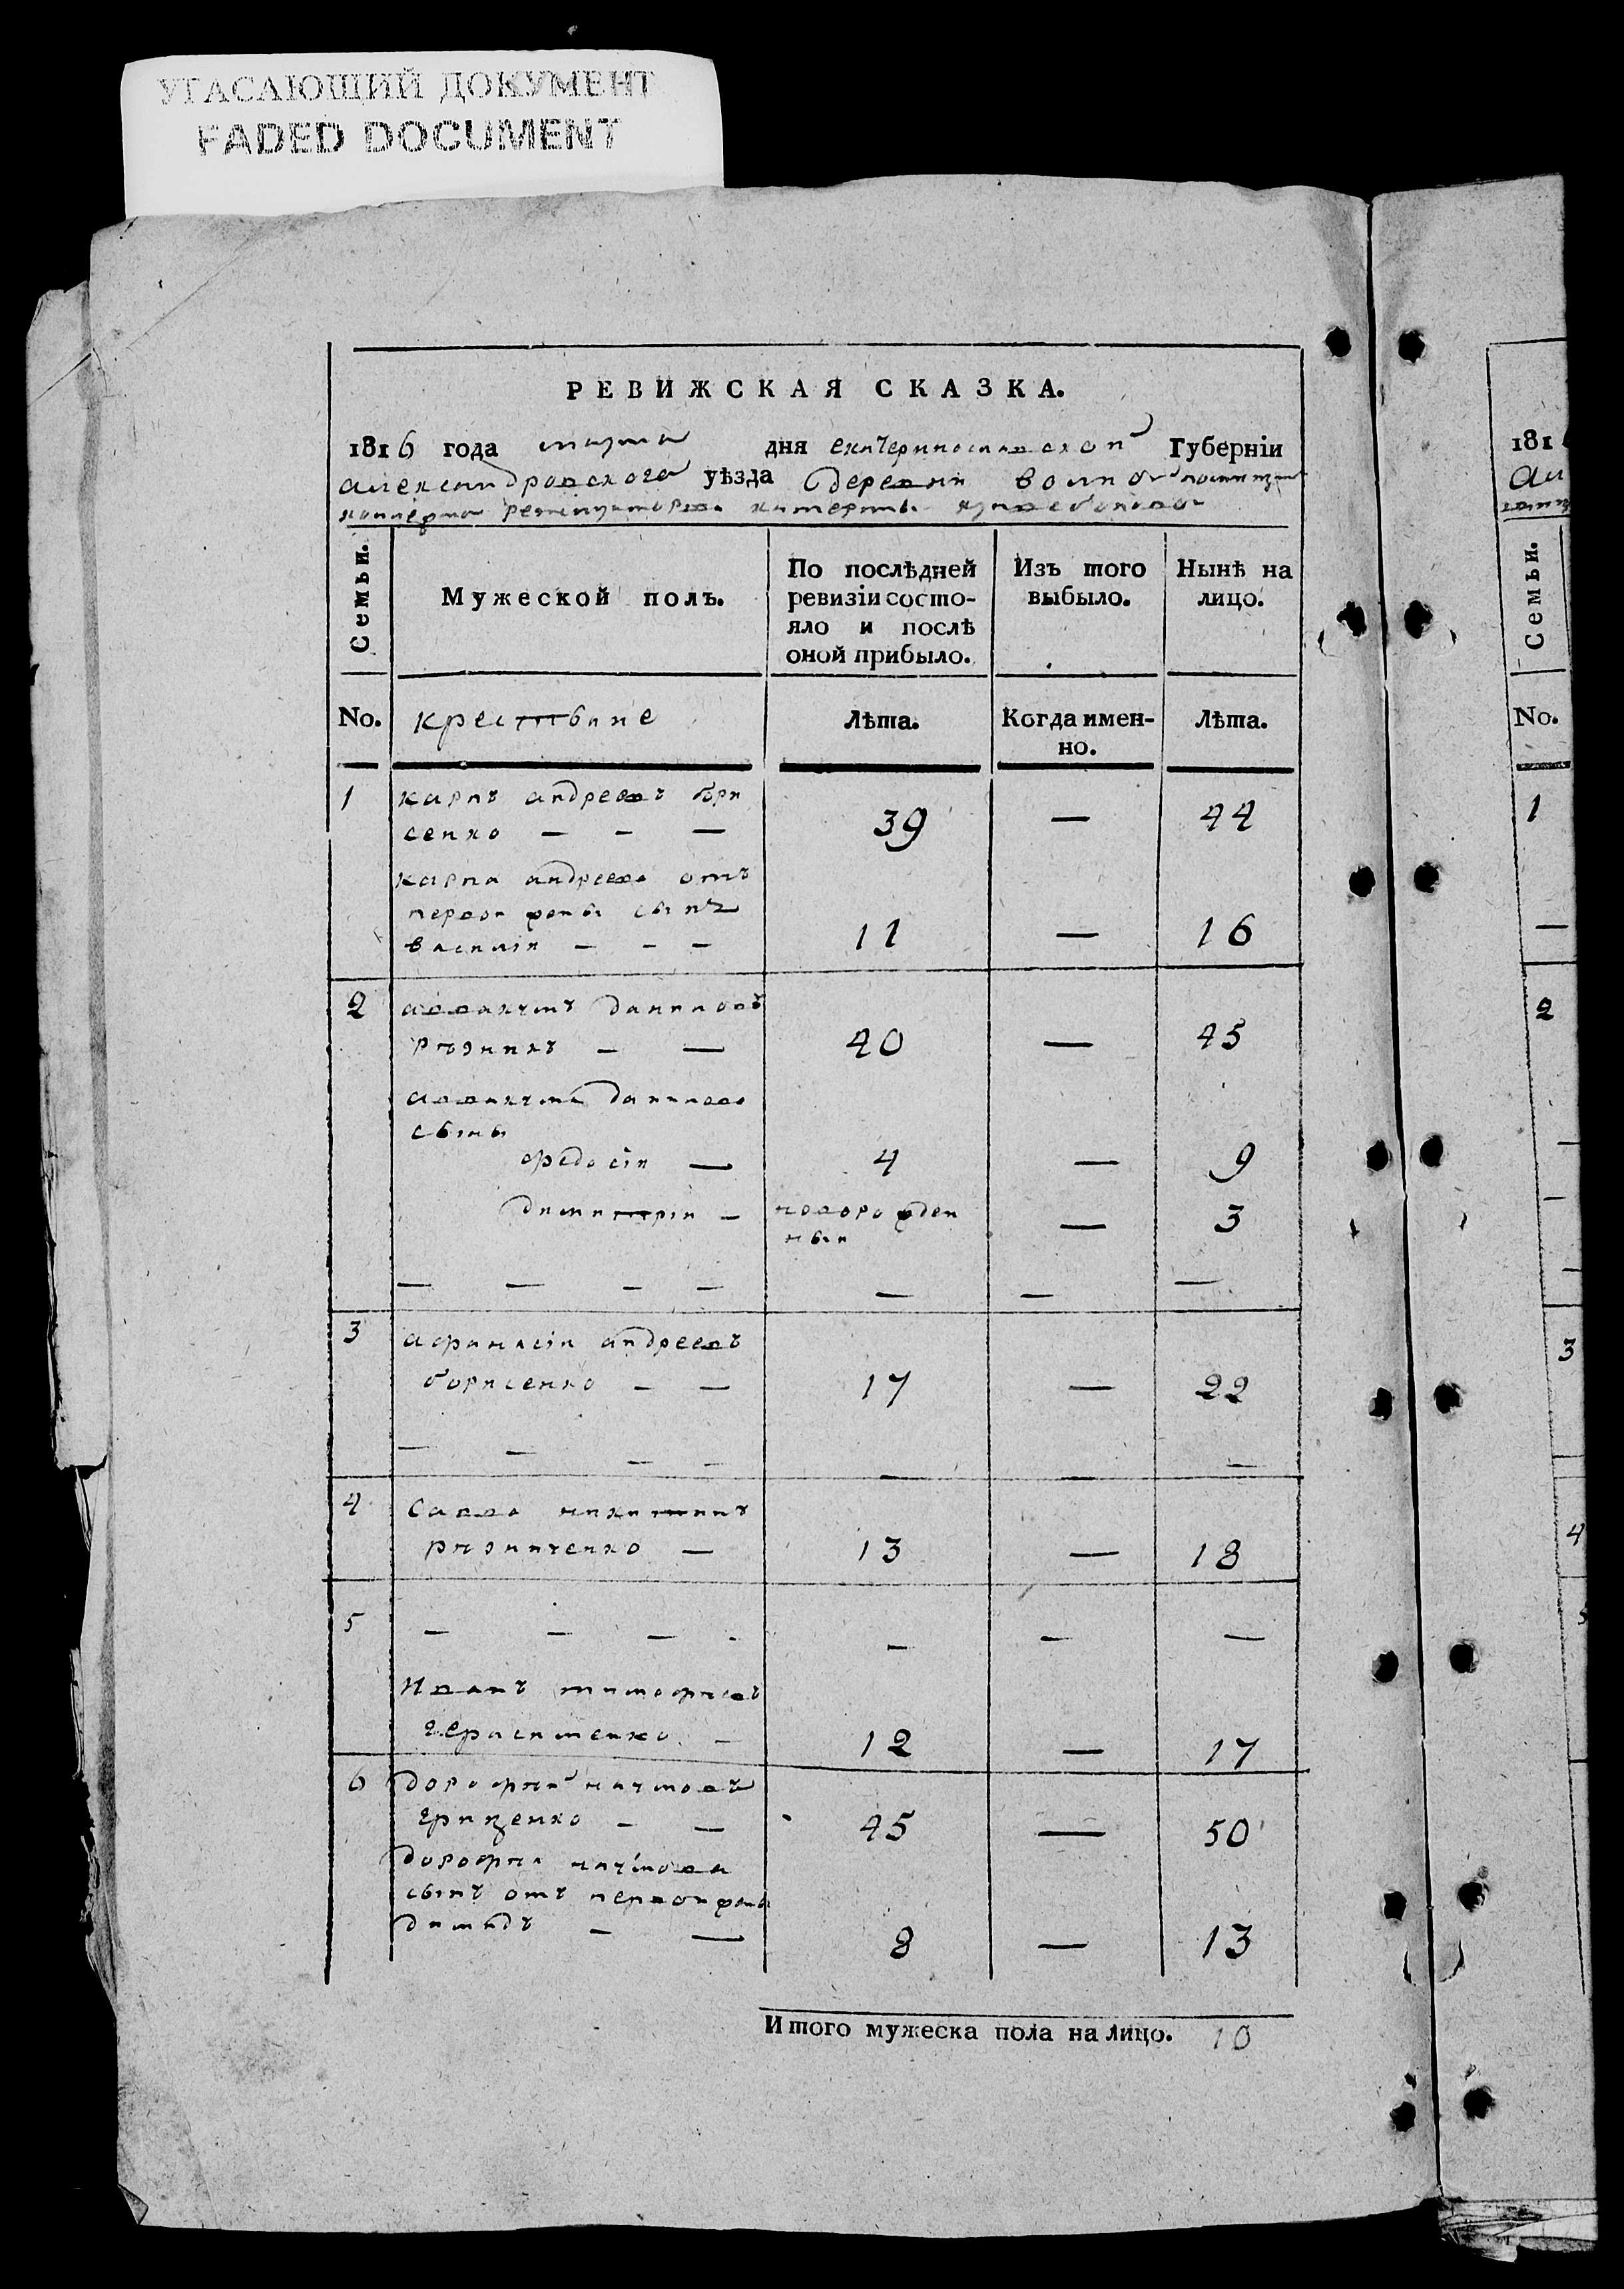 УГАСАЮЩИЙ ДОКУМЕНТ
FADED DOCUMENT
РЕВИЖСКАЯ СКАЗКА.
1816 года марта дня екатеринославской Губерніи
александровского уѣзда деревни
Семьи.
Мужеской полъ.
По послѣдней ревизіи состо-
яло и послѣ
оной прибыло.
Изъ того
выбыло.
Нынѣ на
лицо.
No.
крестьяне
Лѣта.
Когда имен-
но.
Лѣта.
1 карпъ андреевъ бори
сенко — — — 39 — 44
карпа андреева отъ
первой жены сынъ
василій — — — 11 — 16
2 аввакумъ даниловъ
рѣзникъ — — 40 — 45
аввакума данилова
сыны
федосій — 4 — 9
димитрій — новорожден
ный — 3
— — — — — — —
3 афанасій андреевъ
борисенко — — 17 — 22
— — — — — — —
4 Савва никитинъ
рѣзниченко — 13 — 18
5 — — — - — — —
Иванъ тимофѣевъ
герасименко — 12 — 17
6 дорофѣй наумовъ
гриценко — — 45 — 50
дорофѣя наумова
сынъ отъ первой жены
димидъ — — 8 — 13
Итого мужеска пола на лицо. 10
181
Ал
Семьи.
No.
1
—
2
—
—
—
3
4
5